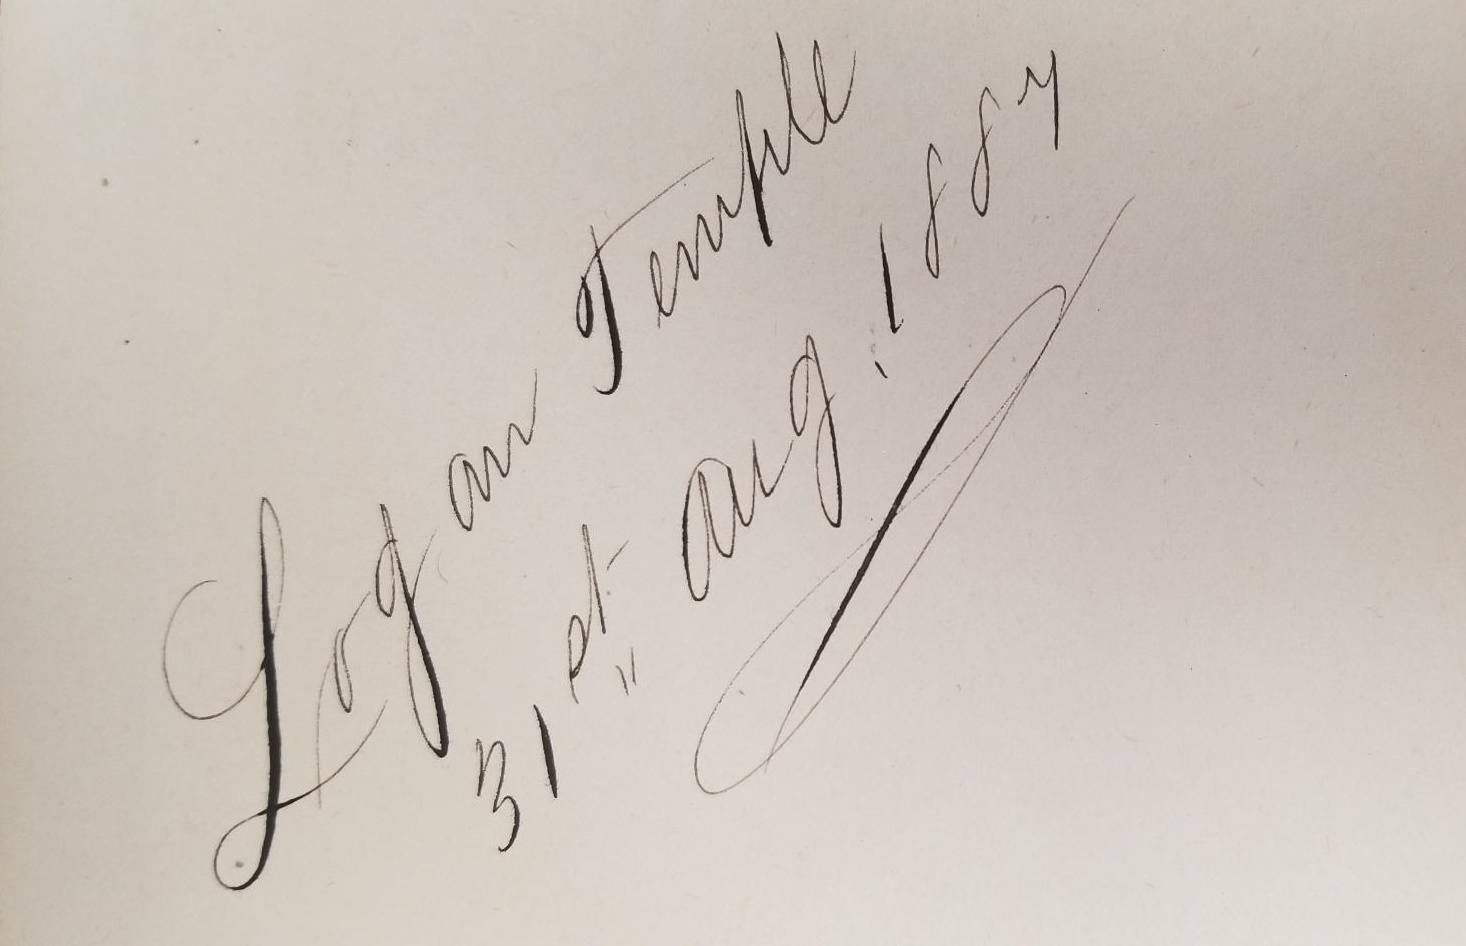 Logan Temple
31st Aug. 1887